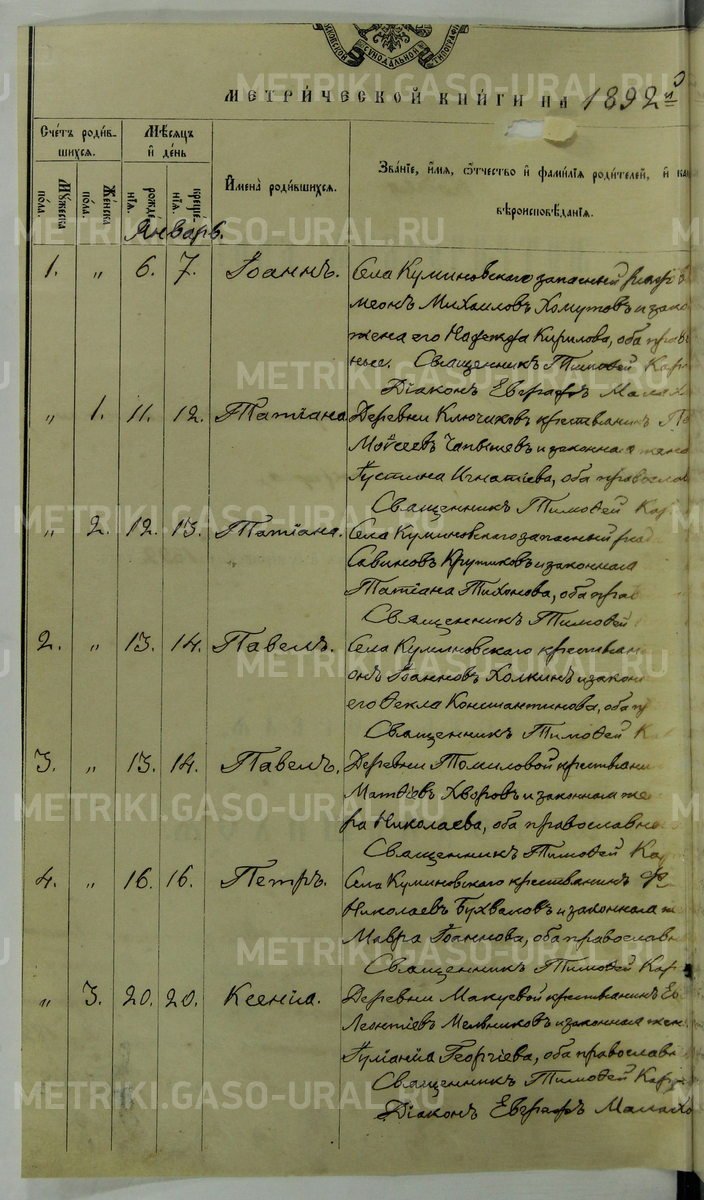 МОСКОВСКОЙ СѴНОДАЛЬНОЙ ТИПОГРАФІИ
МЕТРИ́ЧЕСКОЙ КНИ́ГИ НА 1892й
Сче́тъ роди́вшихся.
Мꙋ́жеска по́ла.
Же́нска по́ла.
Мѣ́сяцъ и҆ де́нь
рожде́нїѧ.
креще́нїѧ.
И҆мена̀ роди́вшихся.
Зва́нїе, и҆́мѧ, ѻ҆́тчество и҆ фамі́лїѧ роди́телей, и҆
вѣроисповѣ́данїѧ.
Январь.
1. „ 6. 7. Іоаннъ. Села Куминовскаго запасный
меонъ Михаиловъ Хомутовъ и зако
жена его Надежда Кирилова, оба прав
ные. Священникъ Тимоѳей Кар
Діаконъ Евграфъ Малахо
„ 1. 11. 12. Татіана Деревни Ключиковъ крестьянинъ
Мойсеевъ и законная жена
Іустина Игнатіева, оба православ
Священникъ Тимоѳей Кар
„ 2. 12. 13. Татіана. Села Куминовскаго запасный ряд
Савиновъ Крутиковъ и законная
Татіана Тихонова, оба прав
Священникъ Тимоѳей
2. „ 13. 14. Павелъ. Села Куминовскаго крестьян
онъ Іоанновъ Холкинъ и закон
его Ѳекла Константинова, оба п
Священникъ Тимоѳей К
3. „ 13. 14. Павелъ. Деревни Томиловой крестьянин
Матѳіевъ Хворовъ и законная же
ра Николаева, оба православно
Священникъ Тимоѳей Кар
4. „ 16. 16. Петръ. Села Куминовскаго крестьянинъ
Николаевъ Бухваловъ и законная
Мавра Іоаннова, оба православн
Священникъ Тимоѳей Кар
„ 3. 20. 20. Ксенія. Деревни Макуевой крестьянинъ Ев
Леонтіевъ Мельниковъ и законная жен
Іуліанія Георгіева, оба православн
Священникъ Тимоѳей Кар
Діаконъ Евграфъ Малахо
METRIKI.GASO-URAL.RU